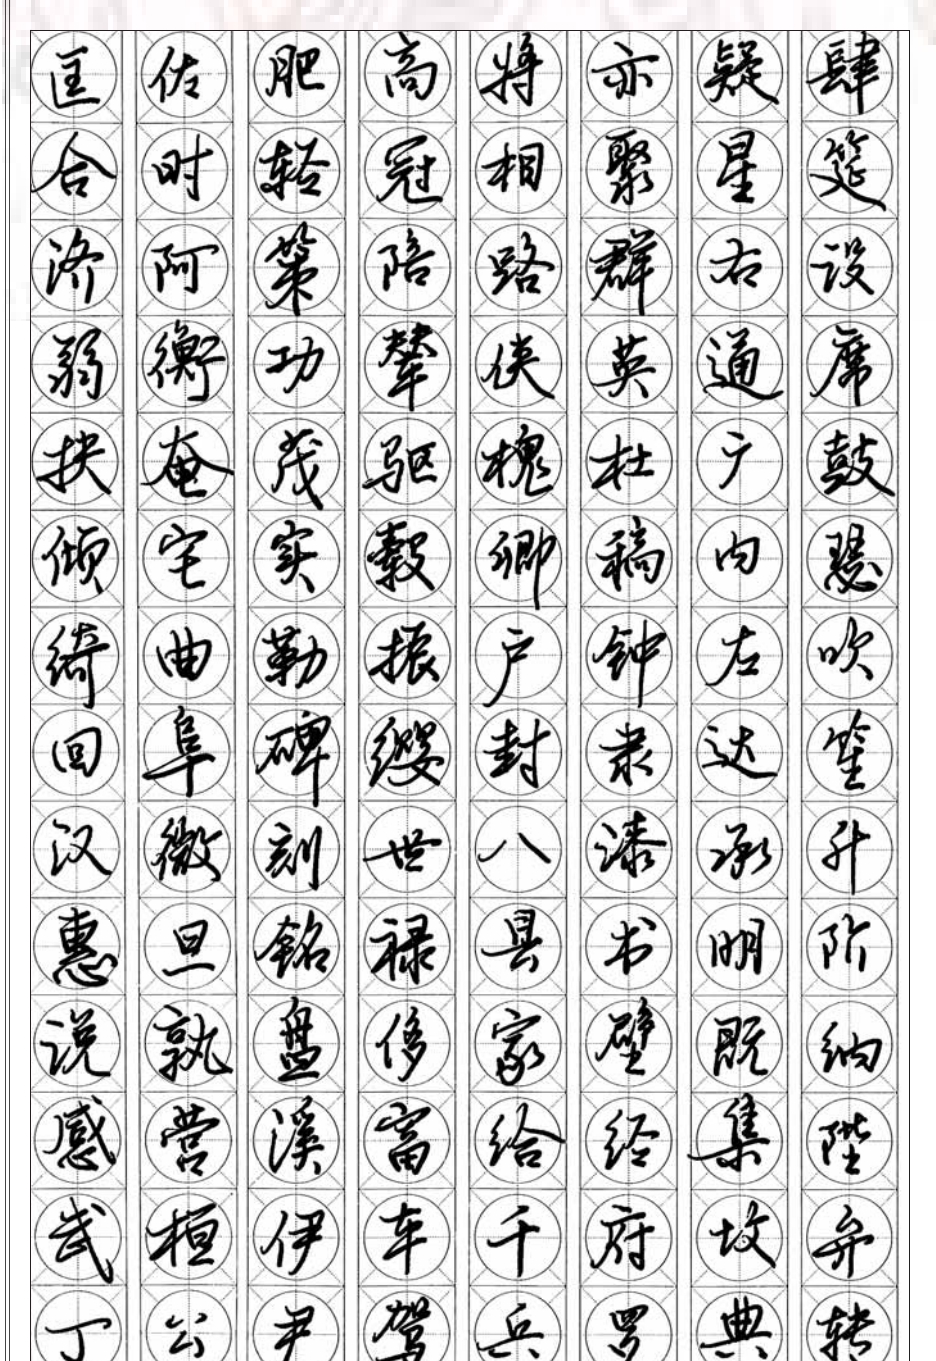 肆筵设席鼓瑟吹笙升阶纳陛弁转
疑星右通广内左达承明既集坟典
亦聚群英杜稿钟隶漆书壁经府罗
将相路侠槐卿户封八县家给千兵
高冠陪辇驱毂振缨世禄侈富车驾
肥轻策功茂实勒碑刻铭盘溪伊尹
佐时阿衡奄宅曲阜微旦孰营桓公
匡合济弱扶倾绮回汉惠说感武丁